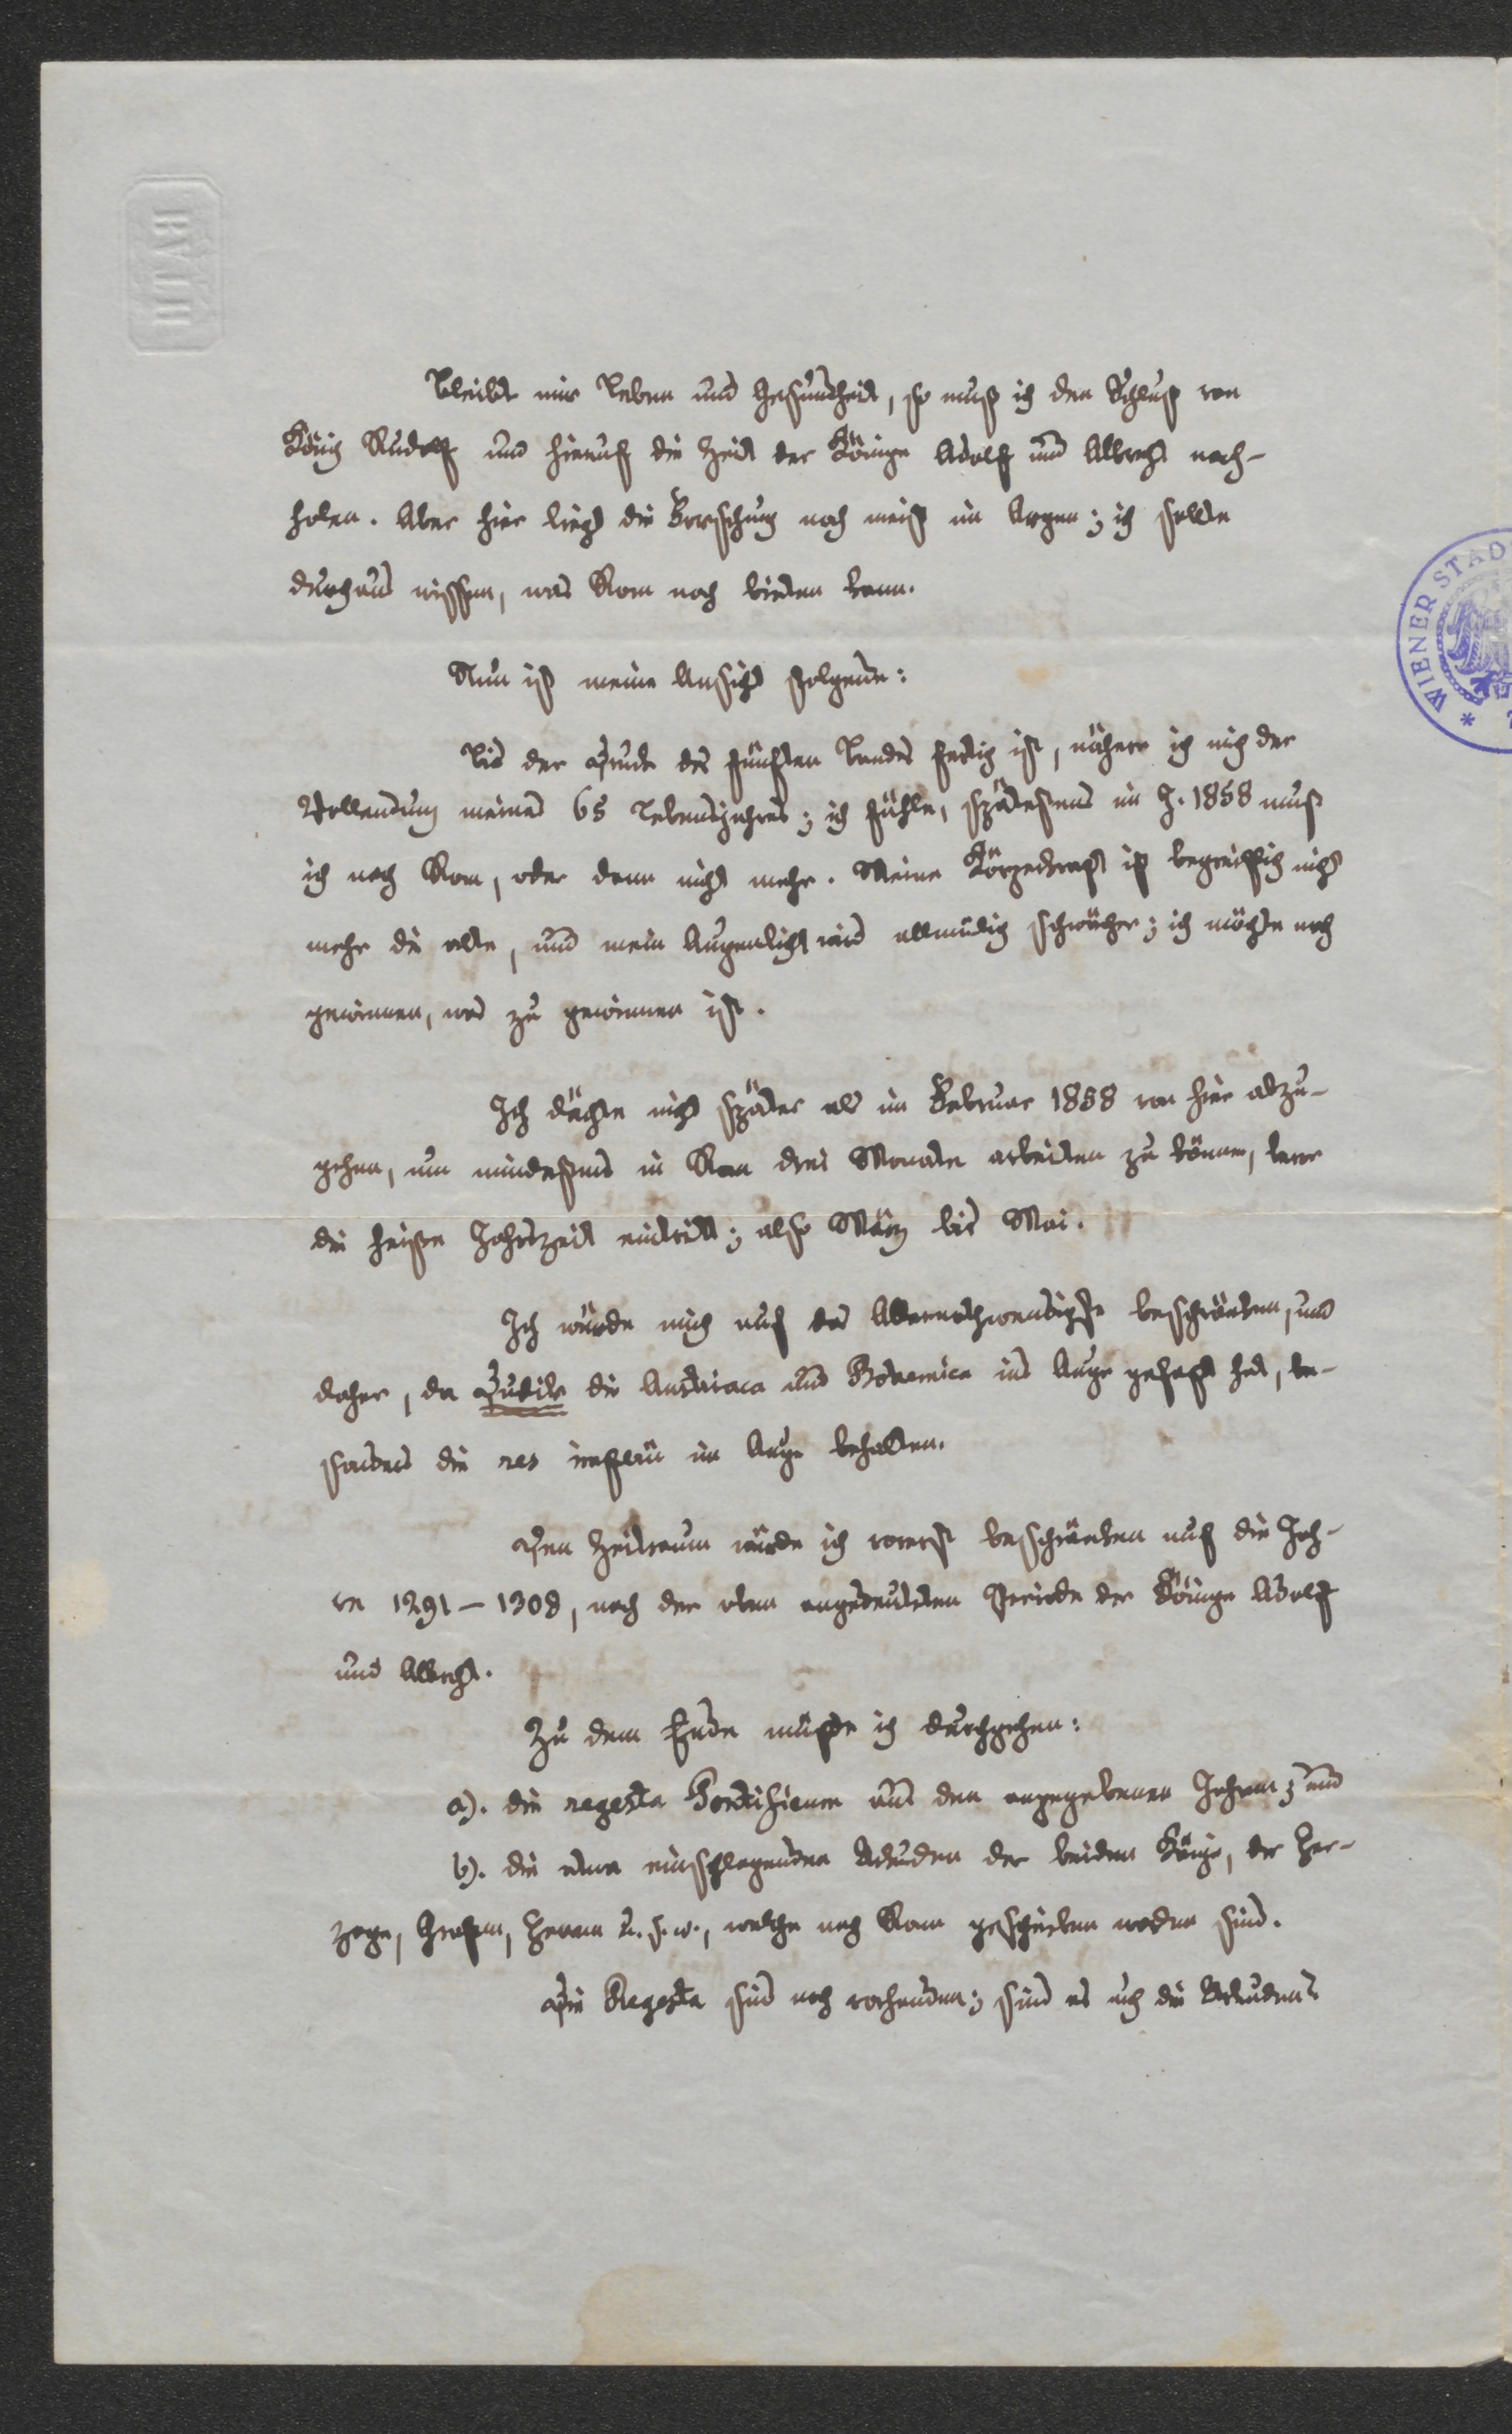 BATH
Bleibt mir Leben und Gesundheit, so muß ich den Schluß von
König Rudolf und hierauf die Zeit der Könige Adolf und Albrecht nach-
holen. Aber hier liegt die Forschung noch meist im Argen; ich sollte
durchaus wissen, was Rom noch bieten kann.
Nun ist meine Ansicht folgende:
Bis der Druck des fünften Bandes fertig ist, nähere ich mich der
Vollendung meines 65 Lebensjahres; ich fühle, spätestens im J. 1858 muß
ich nach Rom, oder dann nicht mehr. Meine Körperkraft ist begreiflich nicht
mehr die alte, und mein Augenlicht wird allmälig schwächer; ich möchte noch
gewinnen, was zu gewinnen ist.
Ich dächte nicht später als im Februar 1858 von hier abzu-
gehen, um mindestens in Rom drei Monate arbeiten zu können, bevor
die heiße Jahrszeit eintritt; also März bis Mai.
Ich würde mich auf das Allernothwendigste beschränken, und
daher, da Dudik die Austriaca und Bohemica ins Auge gefaßt hat, be-
sonders die res imperii im Auge behalten.
Den Zeitraum würde ich vorerst beschränken auf die Jah-
re 1291 – 1308, nach der oben angedeuteten Periode der Könige Adolf
und Albrecht.
Zu dem Ende müßte ich durchgehen:
a). die regesta Pontificum aus den angegebenen Jahren; und
b). die etwa einschlagenden Urkunden der beiden Könige, der Her-
zoge, Grafen, Herren u. s. w., welche nach Rom geschrieben worden sind.
Die Regesta sind noch vorhanden; sind es auch die Urkunden?
WIENER STAD